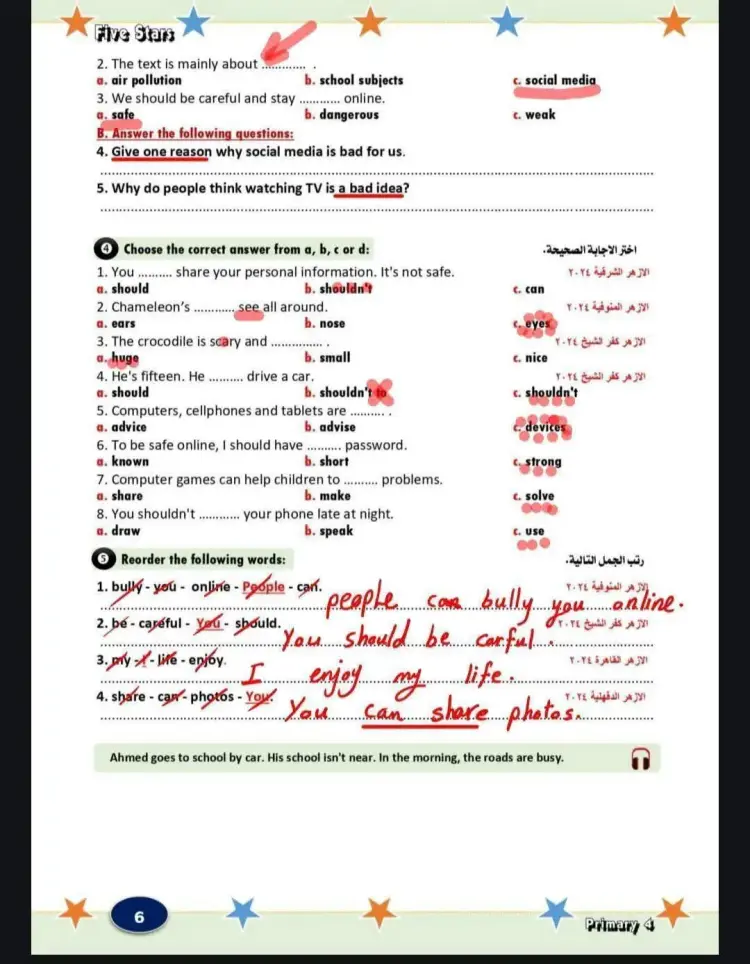 Five Stars
2. The text is mainly about ............. .
a. air pollution b. school subjects c. social media
3. We should be careful and stay ............ online.
a. safe b. dangerous c. weak
B. Answer the following questions:
4. Give one reason why social media is bad for us.
5. Why do people think watching TV is a bad idea?
4 Choose the correct answer from a, b, c or d: اختر الاجابة الصحيحة.
1. You .......... share your personal information. It's not safe. الازهر الشرقية ٢٠٢٤
a. should b. shouldn't c. can
2. Chameleon's ............ see all around. الازهر المنوفية ٢٠٢٤
a. ears b. nose c. eyes
3. The crocodile is scary and ............... . الازهر كفر الشيخ ٢٠٢٤
a. huge b. small c. nice
4. He's fifteen. He .......... drive a car. الازهر كفر الشيخ ٢٠٢٤
a. should b. shouldn't to c. shouldn't
5. Computers, cellphones and tablets are .......... .
a. advice b. advise c. devices
6. To be safe online, I should have .......... password.
a. known b. short c. strong
7. Computer games can help children to .......... problems.
a. share b. make c. solve
8. You shouldn't ............ your phone late at night.
a. draw b. speak c. use
5 Reorder the following words: رتب الجمل التالية.
1. bully - you - online - People - can. الازهر المنوفية ٢٠٢٤
people can bully you online.
2. be - careful - You - should. الازهر كفر الشيخ ٢٠٢٤
You should be carful.
3. my - I - life - enjoy. الازهر القاهرة ٢٠٢٤
I enjoy my life.
4. share - can - photos - You. الازهر الدقهلية ٢٠٢٤
You can share photos.
Ahmed goes to school by car. His school isn't near. In the morning, the roads are busy.
6 Primary 4